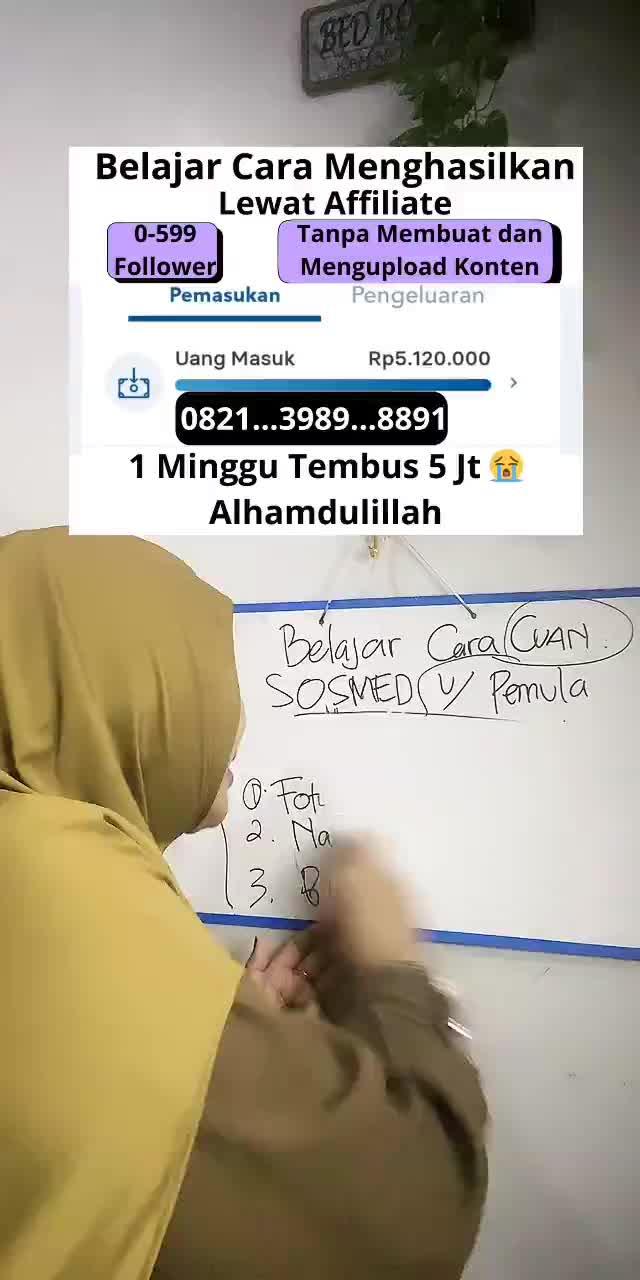 BED RO
Belajar Cara Menghasilkan
Lewat Affiliate
0-599
Follower
Tanpa Membuat dan
Mengupload Konten
Pemasukan
Pengeluaran
Uang Masuk
Rp5.120.000
0821...3989...8891
1 Minggu Tembus 5 Jt 😭
Alhamdulillah
Belajar Cara CUAN.
SOSMED U/ Pemula
1. Fot
2. Na
3. B